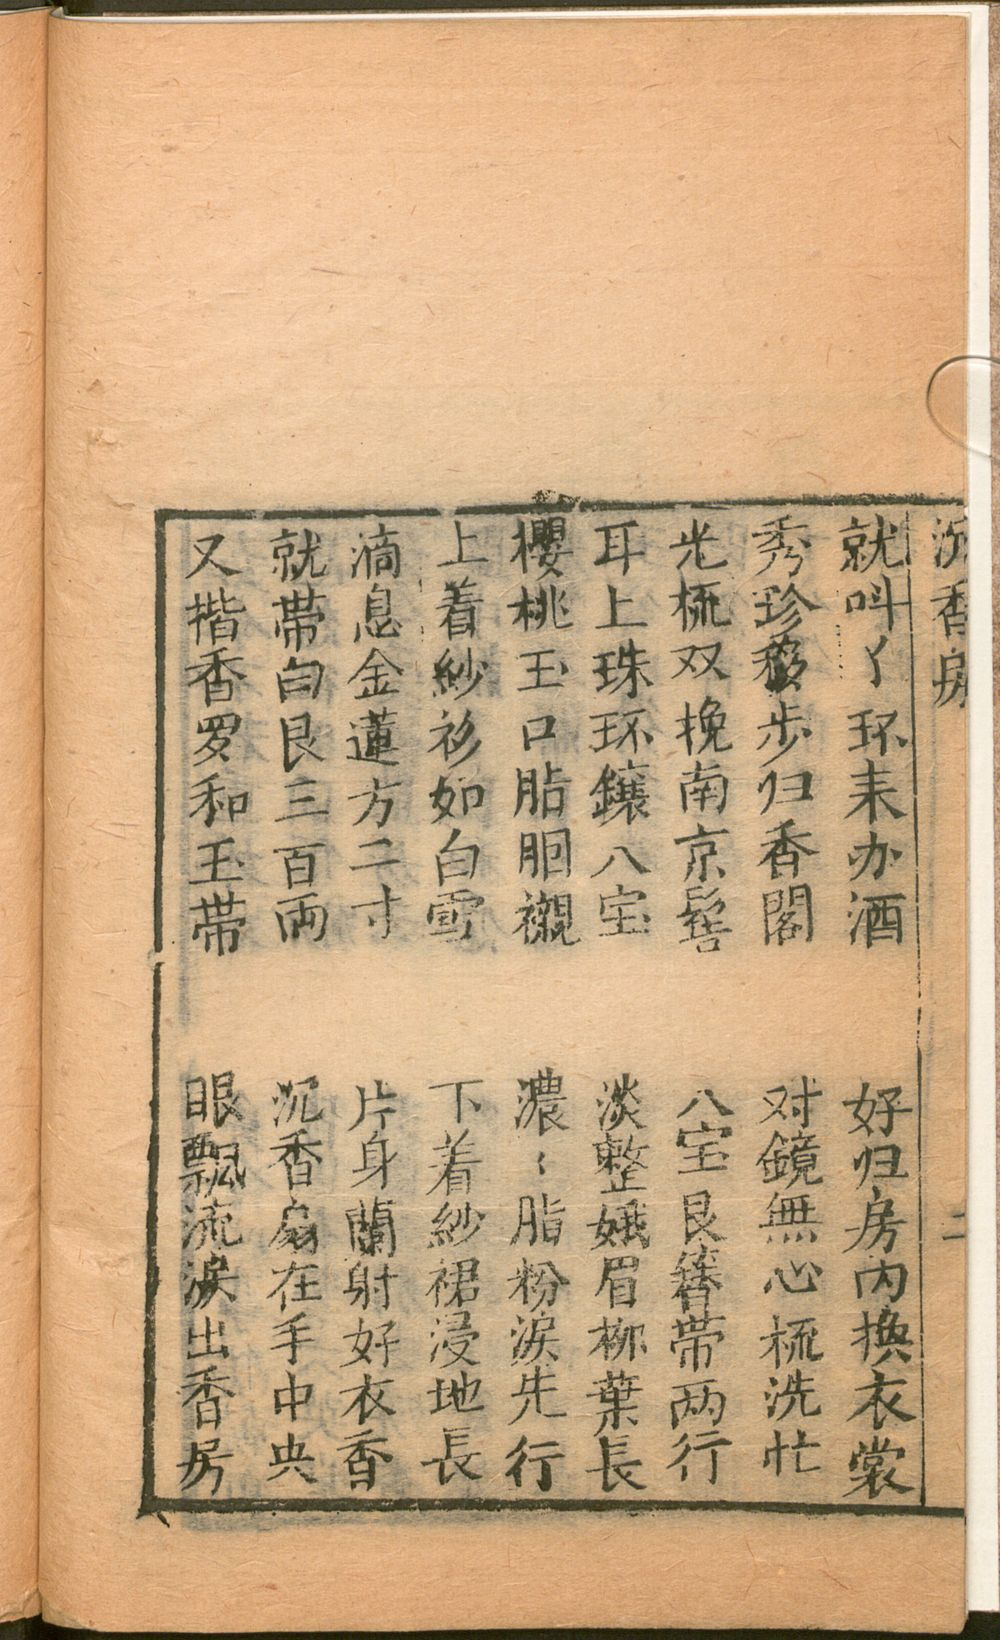 沉香房 二
就叫丫环耒办酒 好归房内换衣裳
秀珍移步归香閣 对鏡無心梳洗忙
光梳双挽南京髻 八宝艮簪带两行
耳上珠环鑲八宝 淡整娥眉柳葉長
櫻桃玉口胎胭襯 濃〻脂粉淚先行
上着紗衫如白雪 下着紗裙浸地長
滴息金蓮方二寸 片身蘭射好衣香
就帶白艮三百両 沉香扇在手中央
又揩香罗和玉带 眼飄流淚出香房